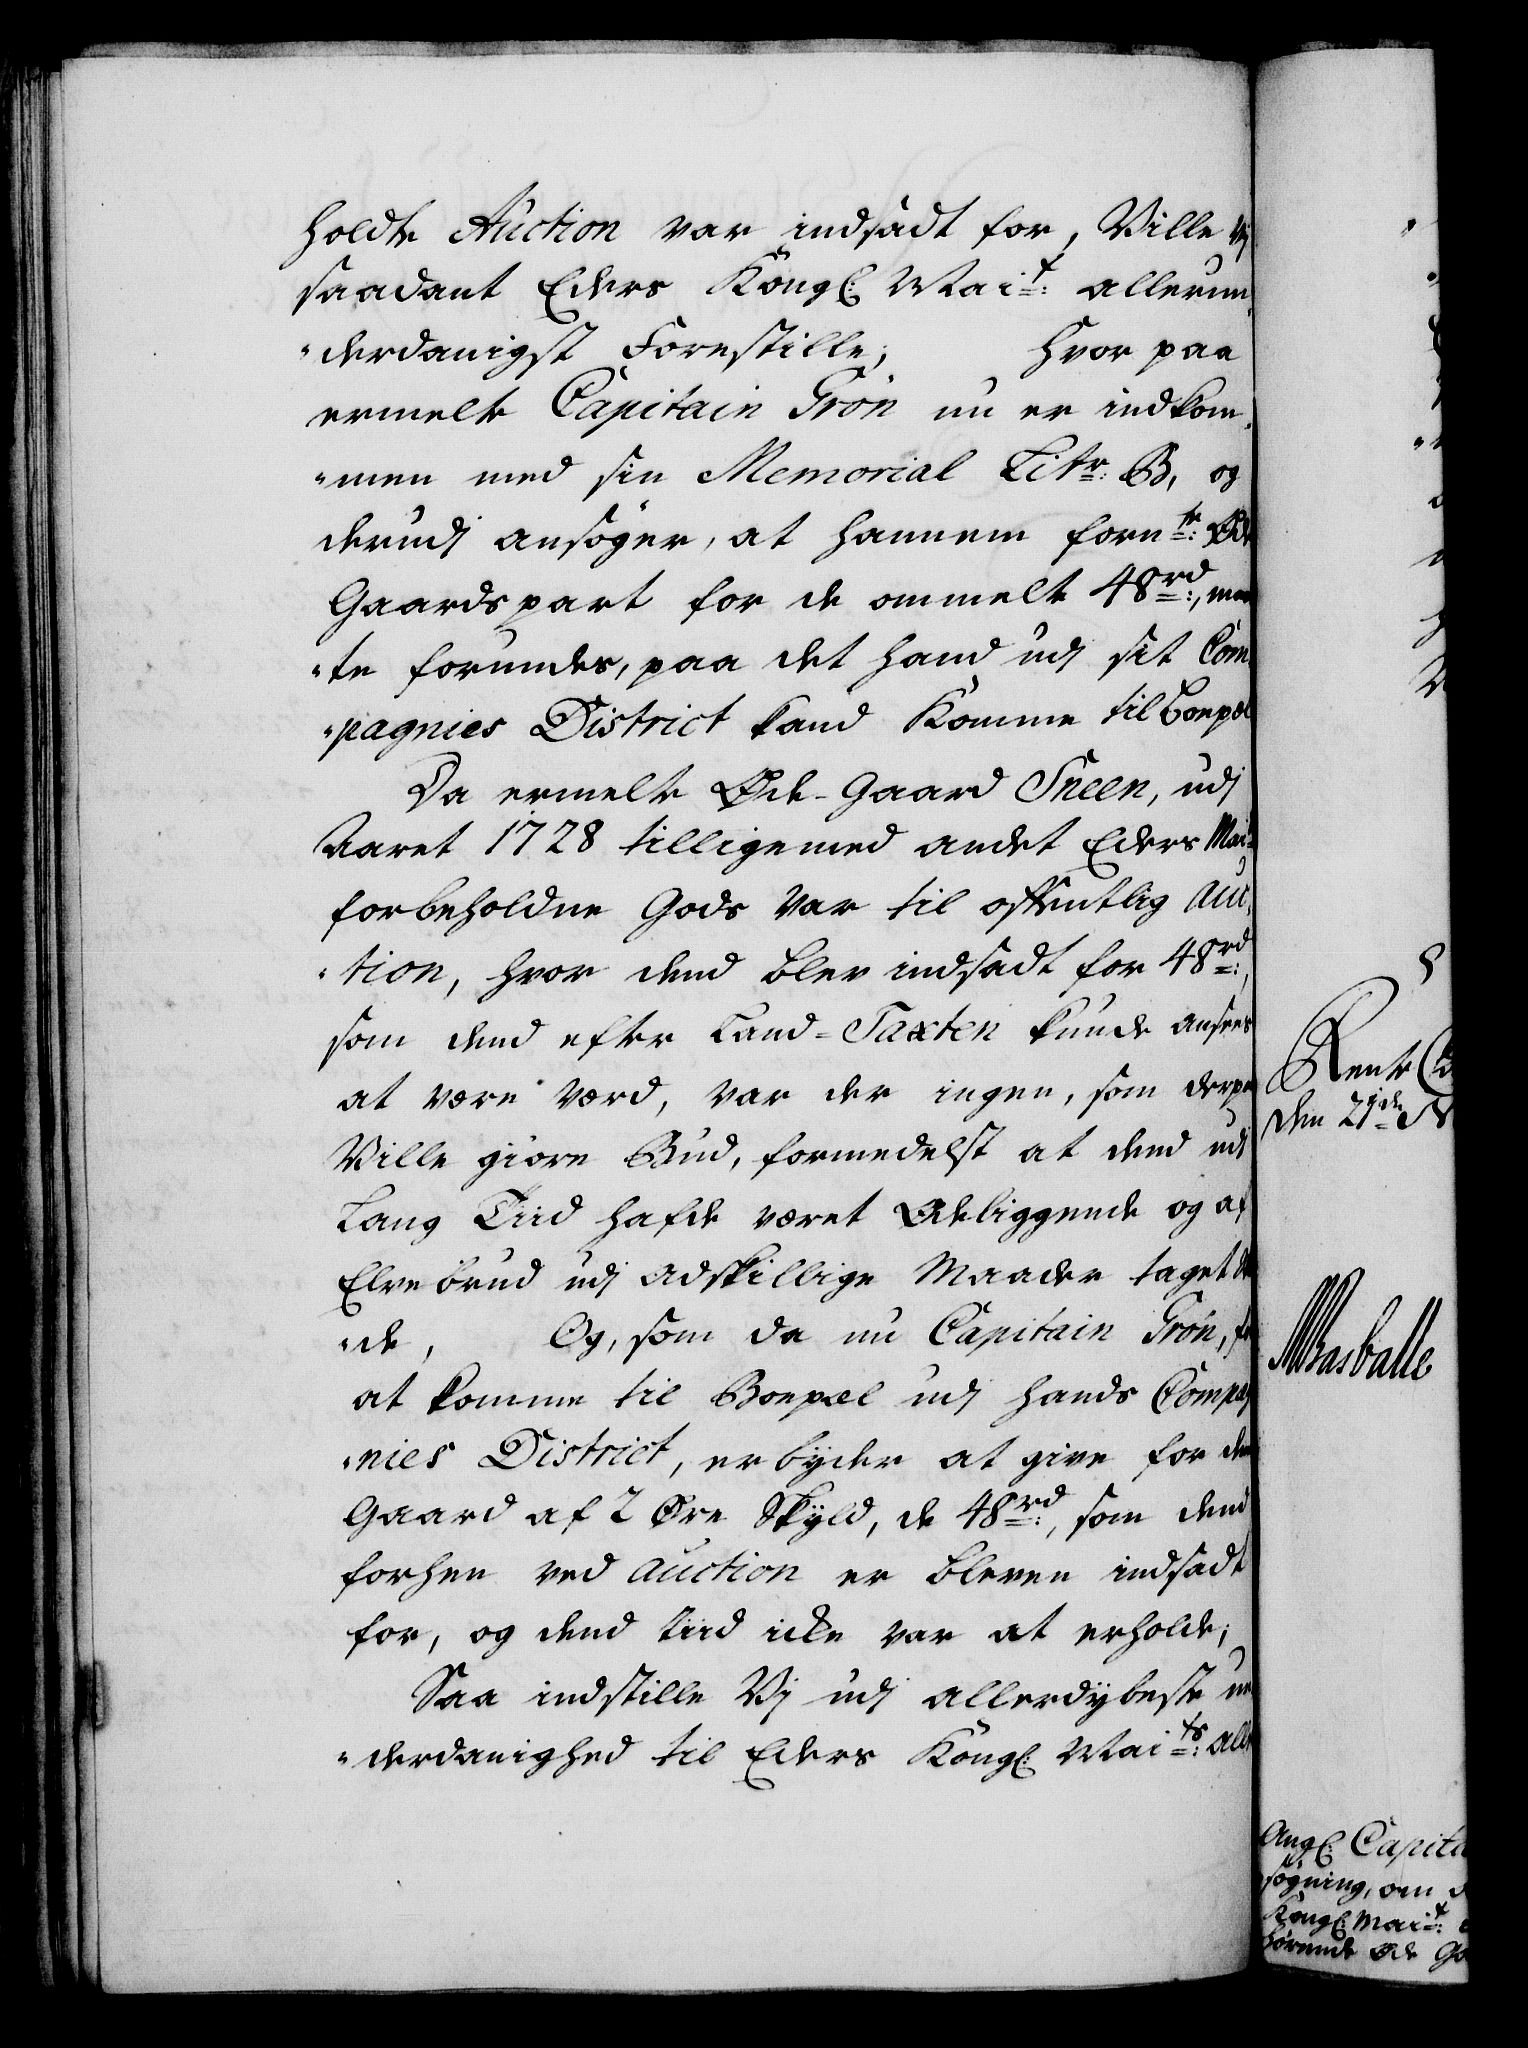 holdte Auction var indsadt for, Ville Vi
saadant Eders Kongl: Mai:t allerun¬
"derdanigst Forestille; hvor paa
ermelte Capitain Grøn nu er indkom¬
"men med sin Memorial Litr: B, og
derudj ansøger, at hannem forn:te Øde
Gaardspart for de ommelte 48 rd:, maa
"te forundes, paa det hand udj sit Com
"pagnies District kand komme til Boepæl
Da ermelte Øde-Gaard Sneen, udj
Aaret 1728 tilligemed andet Eders Mai:ts
forbeholdne Gods var til offentlig Auc¬
"tion, hvor dend blev indsadt for 48 rd:,
som dend efter Land-Taxten kunde ansees
at være værd, var der ingen, som derpaa
Ville giøre Bud, formedelst at dend udj
Lang Tiid hafde været Ødeliggende og af
Elvebrud udj adskillige Maader taget Ska
"de, Og, som da nu Capitain Grøn, for
at komme til Boepæl udj hands Compag
"nies District, erbyder at give for den
Gaard af 2 Øre Skyld, de 48 rd:, som dend
forhen ved Auction er bleven indsadt
for, og dend tiid icke var at erholde;
Saa indstille Vj udj allerdybeste un
"derdanighed til Eders Kongl: Mai:ts aller
Rente Ca
den 21de
Basballe
Angl: Capita
søgning, om
Kongl: Mai:t
hørende øde Ga